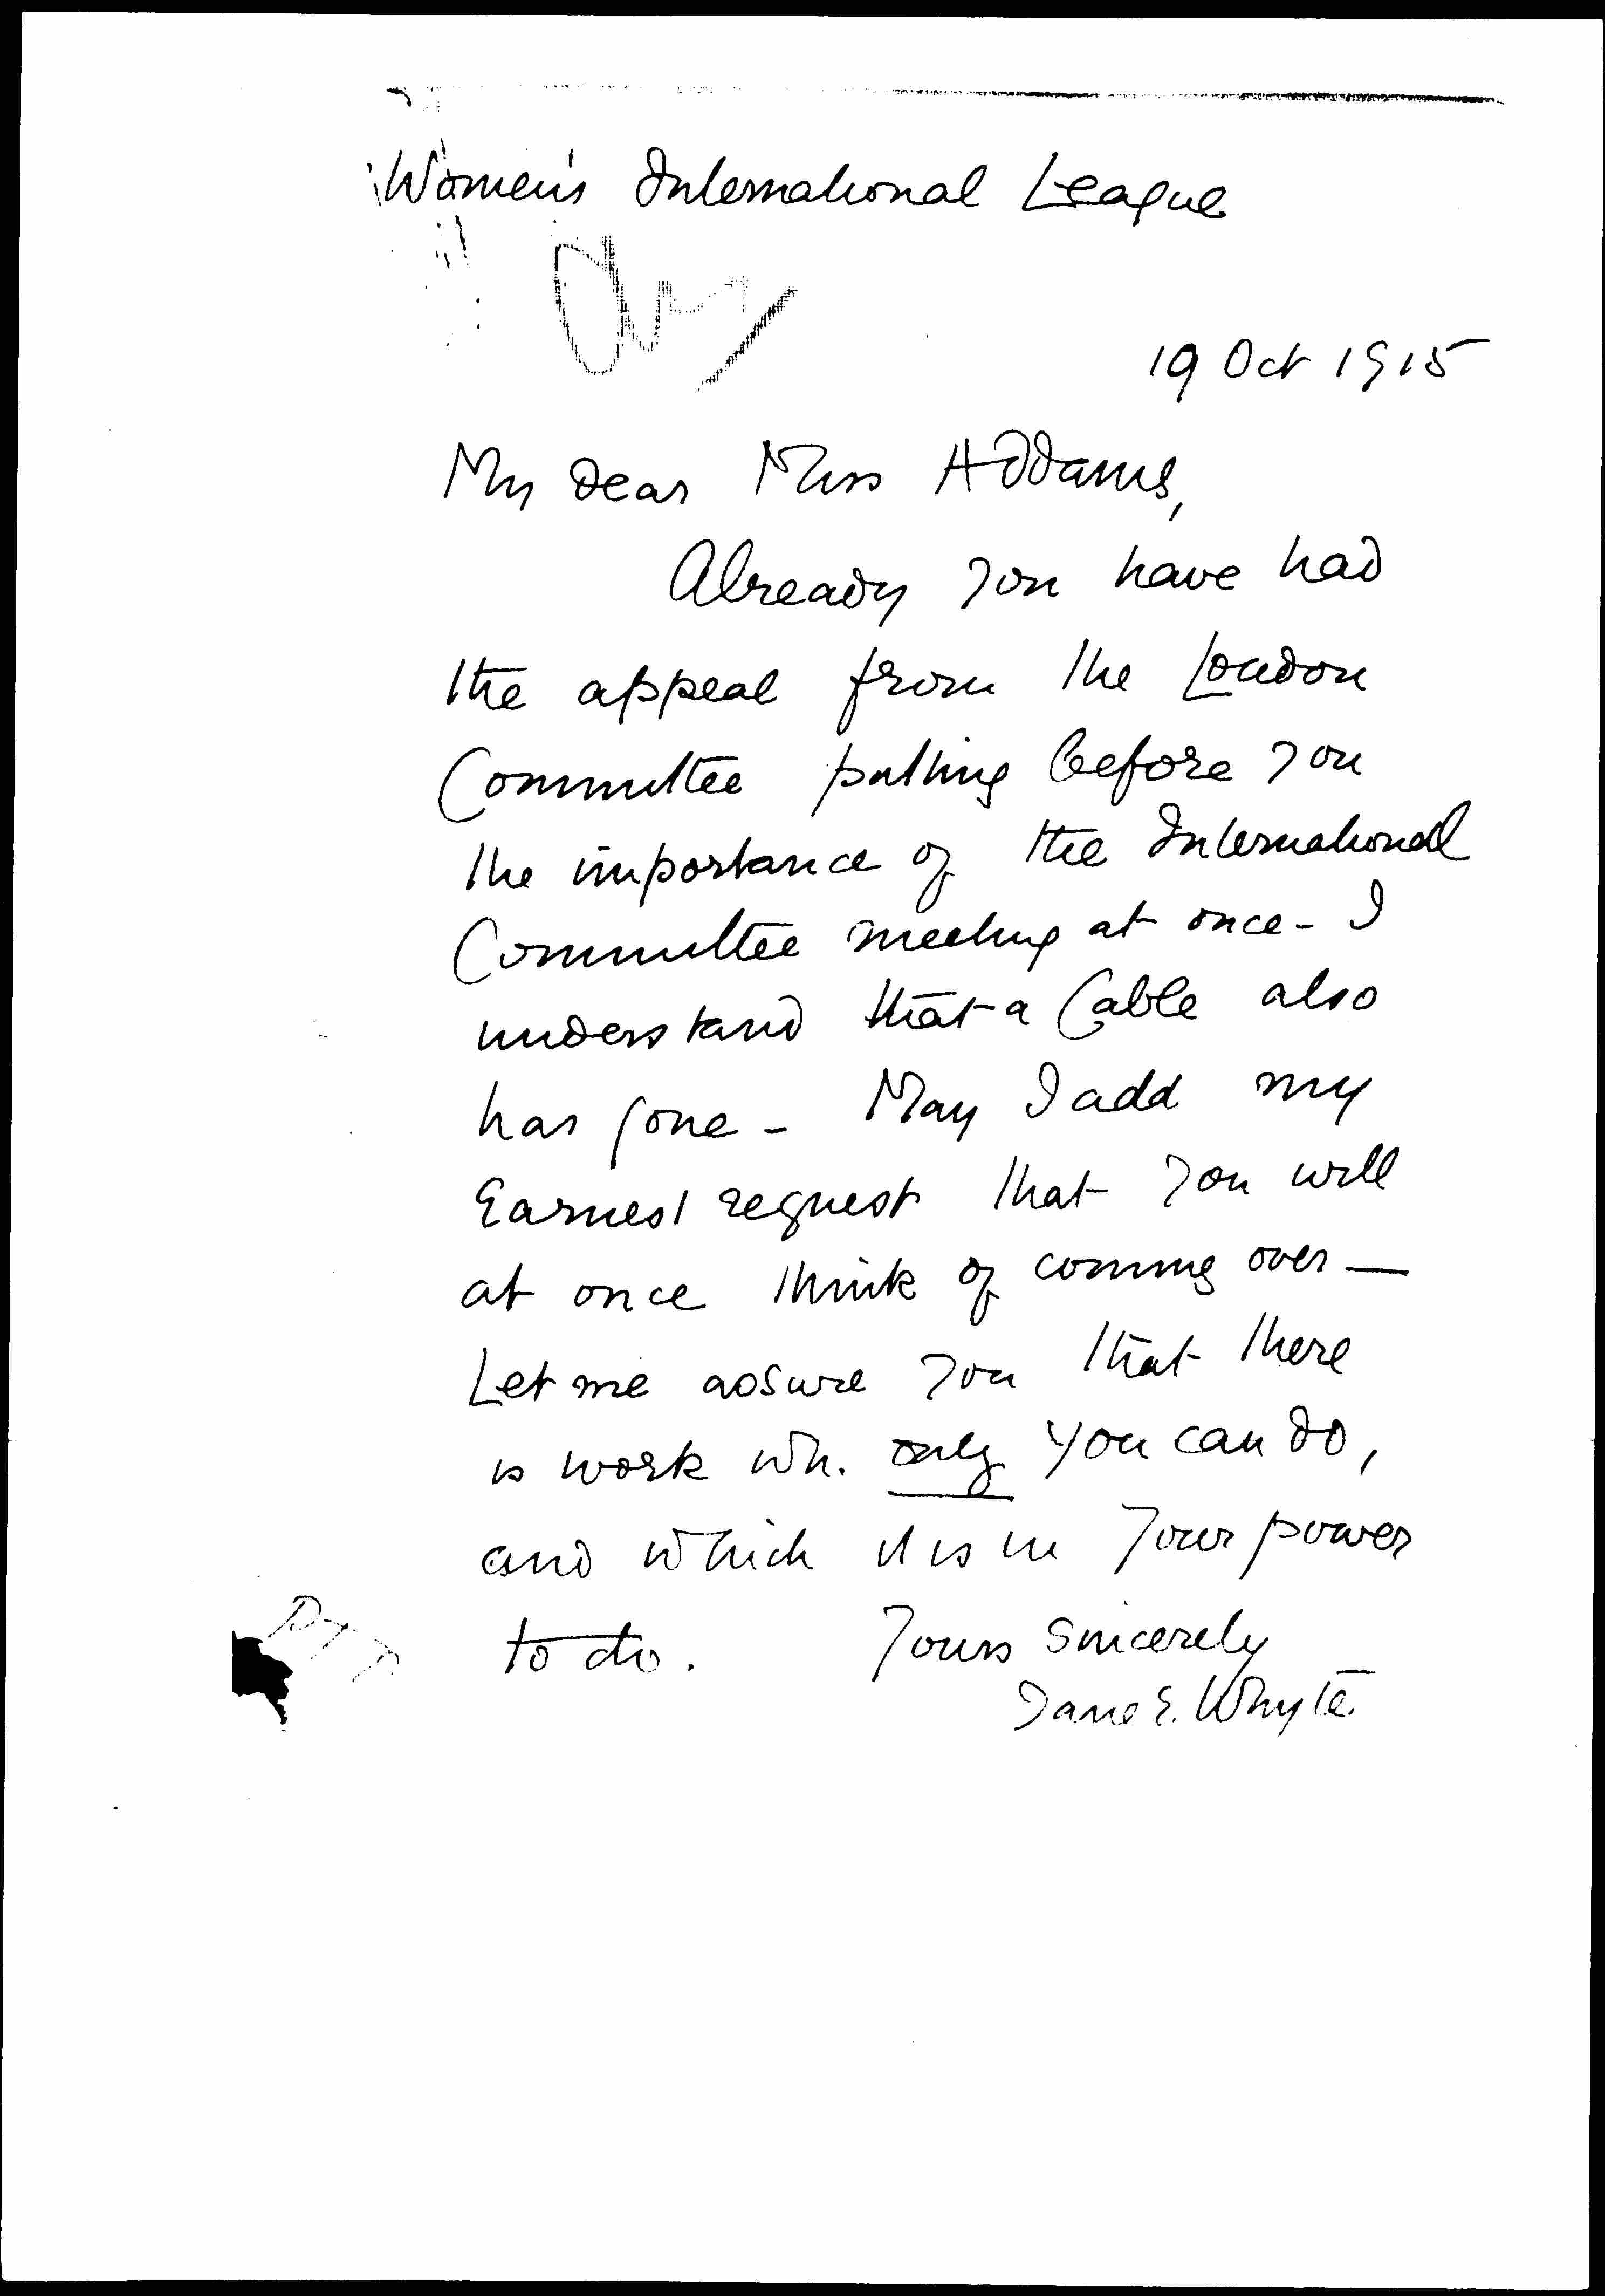 Women's International League
19 Oct 1915
My dear Miss Addams,
Already you have had
the appeal from the London
Committee putting before you
the importance of the International
Committee meeting at once - I
understand that a Cable also
has gone - May I add my
Earnest request that you will
at once think of coming over —
Let me assure you that there
is work wh. only you can do,
and which it is in your power
to do. Yours sincerely
Jane E. Whyte